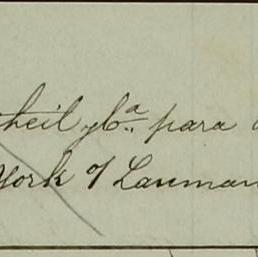 theil y Ca. para
York of Lauman